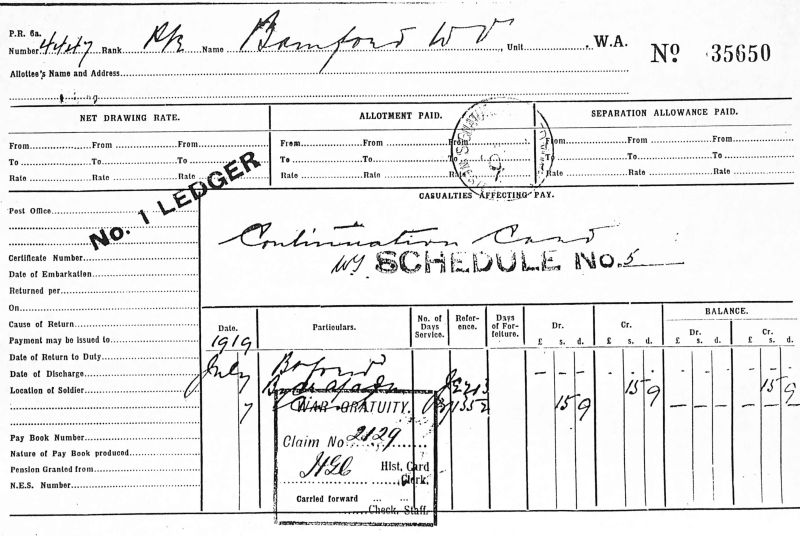 P.R. 6a.
Number 4447 Rank Name Bamford W V , Unit , W.A. No. 35650
Allottee's Name and Address
NET DRAWING RATE. ALLOTMENT PAID. SEPARATION ALLOWANCE PAID.
From From From From From From From From From
To To To To To To To To To
Rate Rate Rate Rate Rate Rate Rate Rate Rate
No. 1 LEDGER
CASUALTIES AFFECTING PAY.
Post Office
Continuation Card
SCHEDULE No. 5
Certificate Number
Date of Embarkation
Returned per
On
Cause of Return
Payment may be issued to
Date of Return to Duty
Date of Discharge
Location of Soldier
Pay Book Number
Nature of Pay Book produced
Pension Granted from
N.E.S. Number
BALANCE.
Date. Particulars. No. of Days Service. Reference. Days of Forfeiture. Dr. Cr. Dr. Cr.
£ s. d. £ s. d. £ s. d. £ s. d.
1919
July
15 9 15 9
7 1352 15 9
WAR GRATUITY.
Claim No 2129
Hist. Card
Clerk.
Carried forward
Check. Staff.